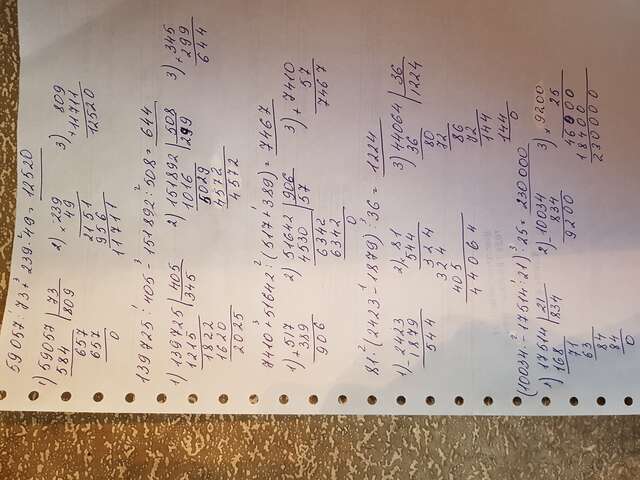 59057 : 73 + 239 · 49 = 12520
1) 59057 | 73
584 | 809
657
657
0
2) × 239
49
2151
956
11711
3) + 809
11711
12520
139725 : 405 + 151892 : 508 = 644
1) 139725 | 405
1215 | 345
1822
1620
2025
2) 151892 | 508
1016 | 299
5029
4572
4572
3) + 345
299
644
7410 + 51642 : (517 + 389) = 7467
1) + 517
389
906
2) 51642 | 906
4530 | 57
6342
6342
0
3) + 7410
57
7467
81 · (2423 - 1879) : 36 = 1224
1) - 2423
1879
544
2) × 81
544
324
324
405
44064
3) 44064 | 36
36 | 1224
80
72
86
72
144
144
0
(10034 - 17514 : 21) · 25 = 230000
1) 17514 | 21
168 | 834
71
63
84
84
0
2) - 10034
834
9200
3) × 9200
25
46000
18400
230000